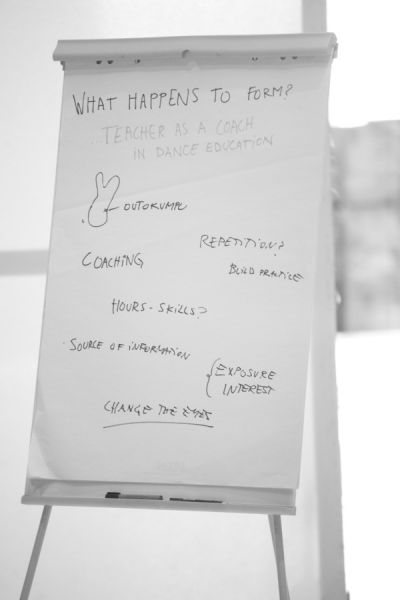 WHAT HAPPENS TO FORM?
...TEACHER AS A COACH
IN DANCE EDUCATION
OUTOKUMPU
REPETITION?
COACHING
BUILD PRACTICE
HOURS - SKILLS?
· SOURCE OF INFORMATION
EXPOSURE
INTEREST
CHANGE THE EYES